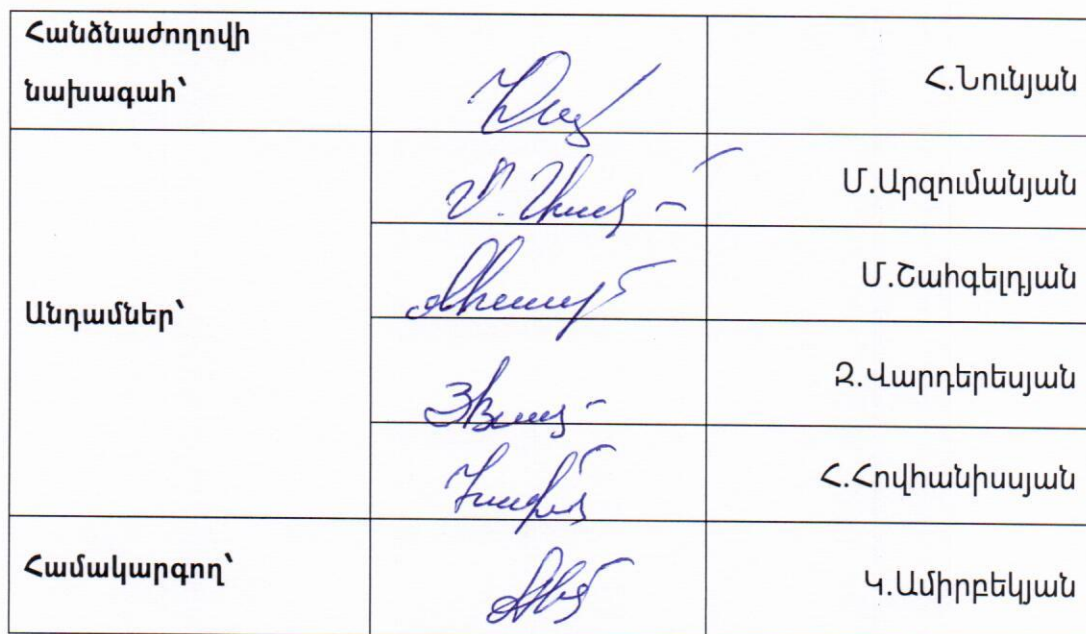 Հանձնաժողովի
նախագահ՝
Հ.Նունյան
Մ.Արզումանյան
Մ.Շահգելդյան
Անդամներ՝
Զ.Վարդերեսյան
Հ.Հովհանիսսյան
Համակարգող՝
Կ.Ամիրբեկյան